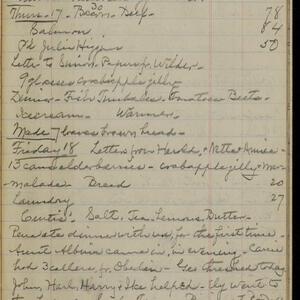 Thurs. 17 - Bacon - Beef - 78
Salmon 84
Pd Julia Higgins 50
Letter to Junior. Papers fr. Wilder.
9 glasses crabapple jelly -
Dinner - Fish Timbales. Tomatoes Beets -
Icecream - Warmer
Made 7 loaves brown bread -
Friday 18 Letters from Harold, + Netta + Annise -
13 cans elderberries - crabapple jelly + mar-
malade - Bread 20
Laundry 27
Curtis: Salt, Tea, Lemons, Butter -
Pere ate dinner with us, for the first time -
Aunt Albina came in, in evening - Carrie
had 3 callers, fr. Oberlin - Geo threshed today
John, Harl, Harry + Ike helped - Fly want to